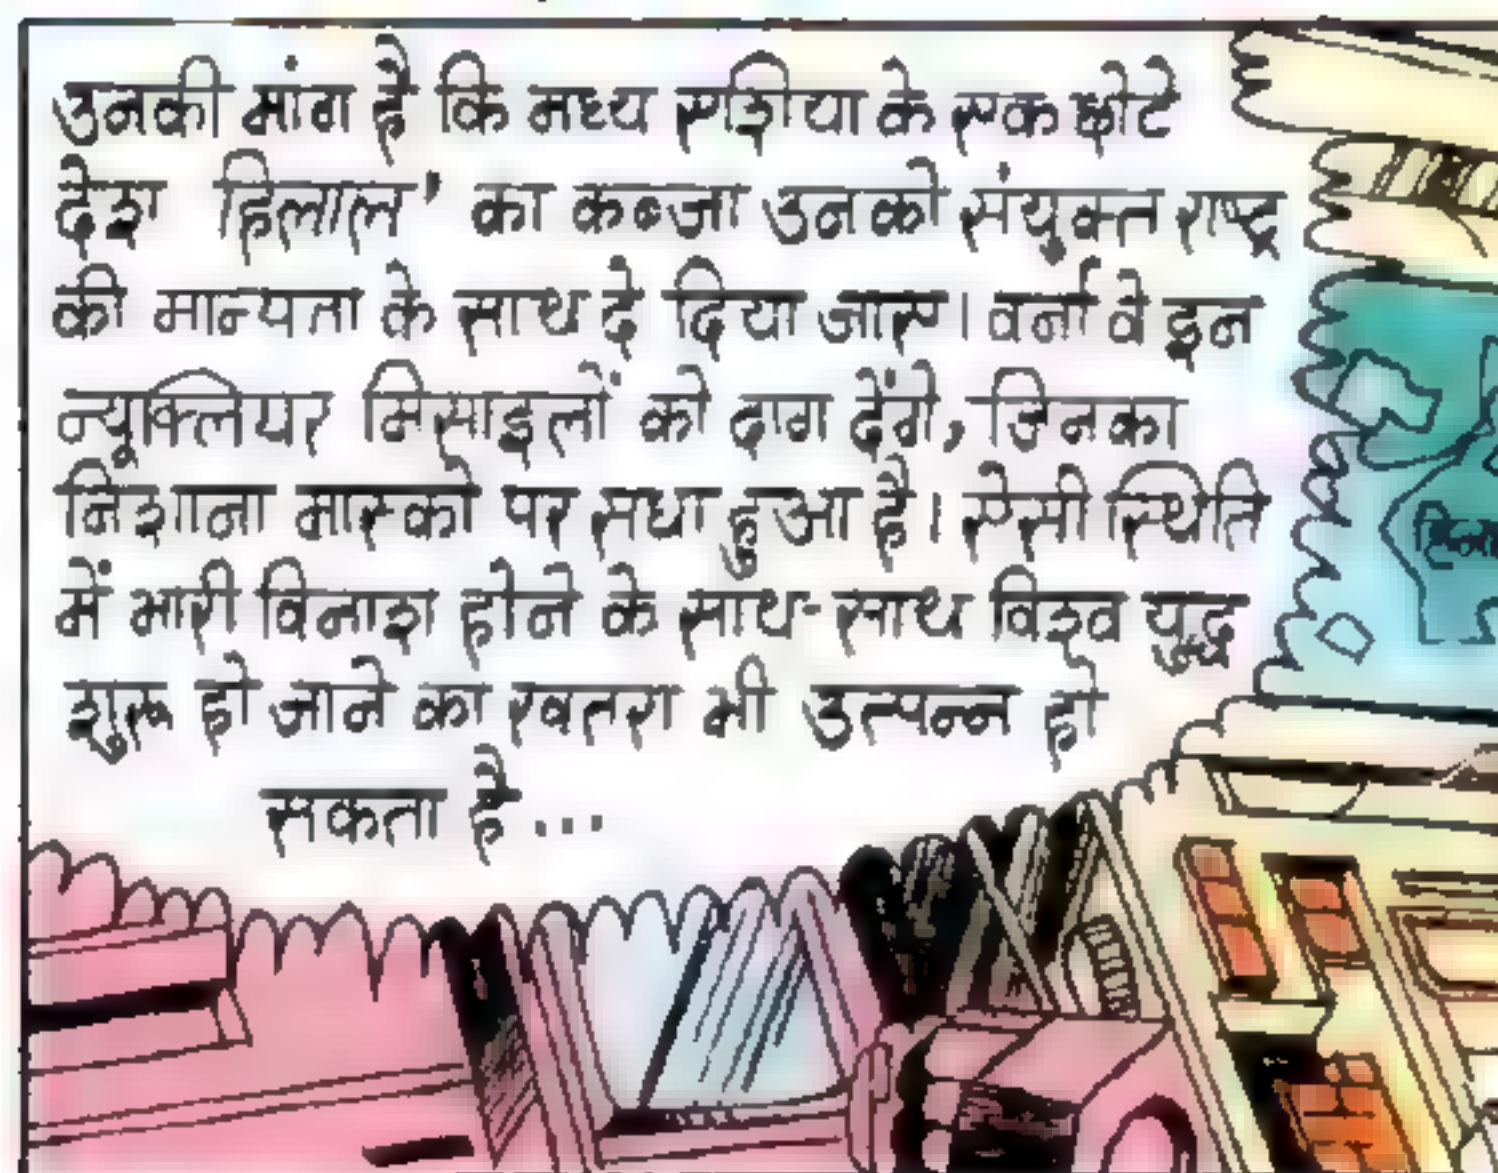 उनकी मांग है कि मध्य एशिया के एक छोटे
देश 'हिलाल' का कब्जा उनको संयुक्त राष्ट्र
की मान्यता के साथ दे दिया जाए। वर्ना वे इन
न्यूक्लियर मिसाइलों को दाग देंगे, जिनका
निशाना मास्को पर सधा हुआ है। ऐसी स्थिति
में भारी विनाश होने के साथ-साथ विश्व युद्ध
शुरू हो जाने का खतरा भी उत्पन्न हो
सकता है...